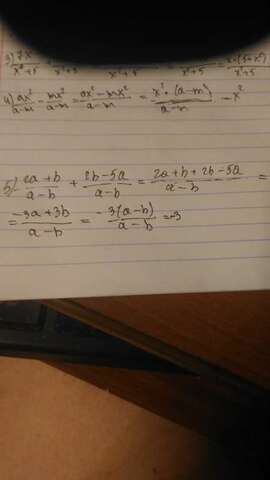 4) ax²/a-m - mx²/a-m = ax² - mx²/a-m = x² · (a-m)/a-m = x²
5) 2a+b/a-b + 2b-5a/a-b = 2a+b+2b-5a/a-b =
= -3a+3b/a-b = -3(a-b)/a-b = -3